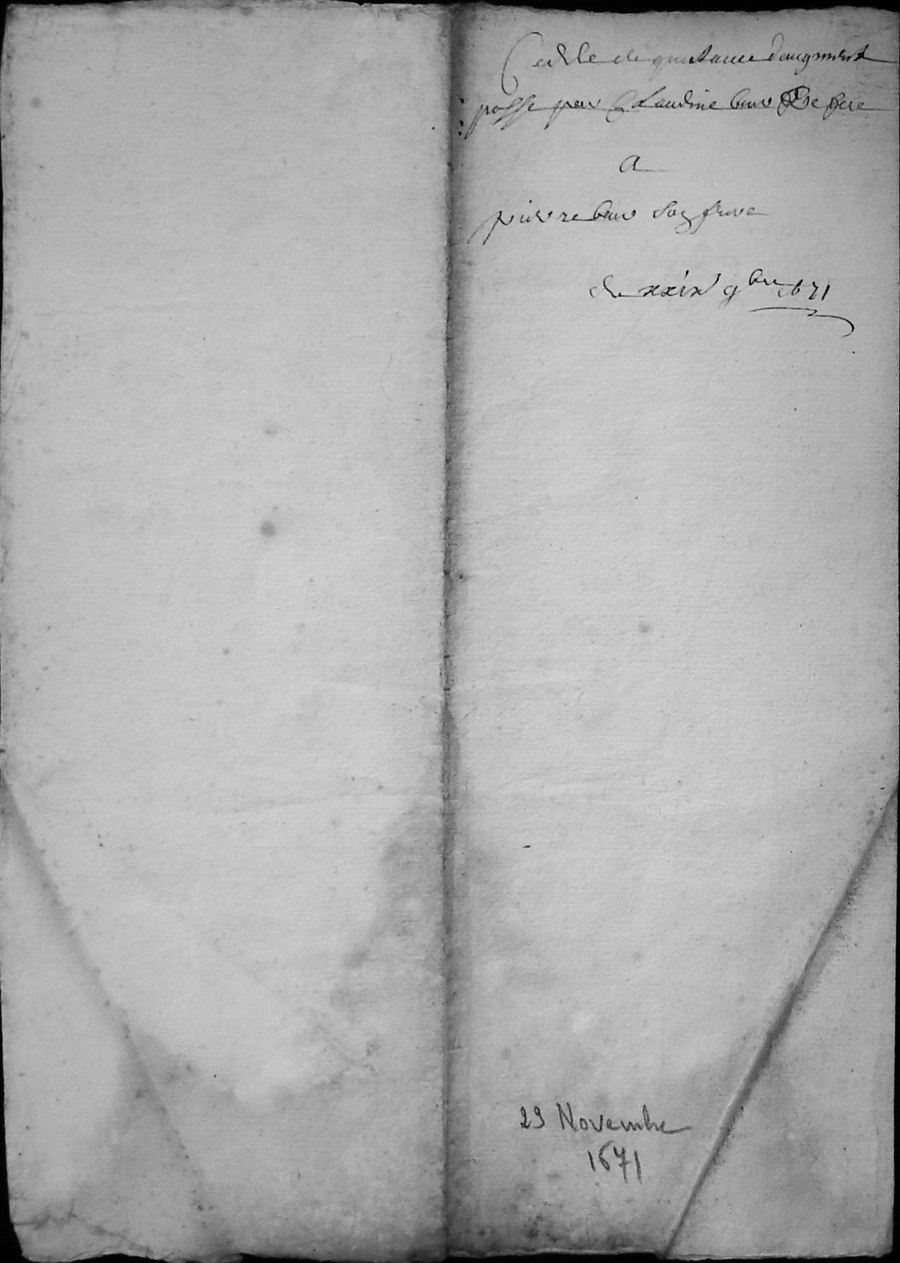 Cedule de quittance d'augment
passe par Claudine
a
pierre son frere
de xxix 9bre 1671
29 Novembre
1671